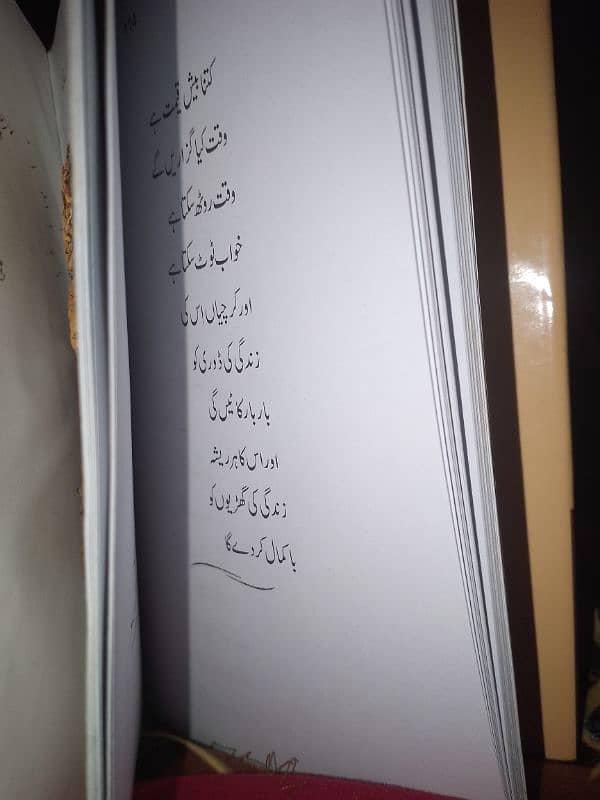 کتنا بیش قیمت ہے
وقت کیا گزاریں گے
وقت روٹھ سکتا ہے
خواب ٹوٹ سکتا ہے
اور کرچیاں اس کی
زندگی کی ڈوری کو
بار بار کاٹیں گی
اور اس کا ہر ریشہ
زندگی کی گھڑیوں کو
باکمال کر دے گا